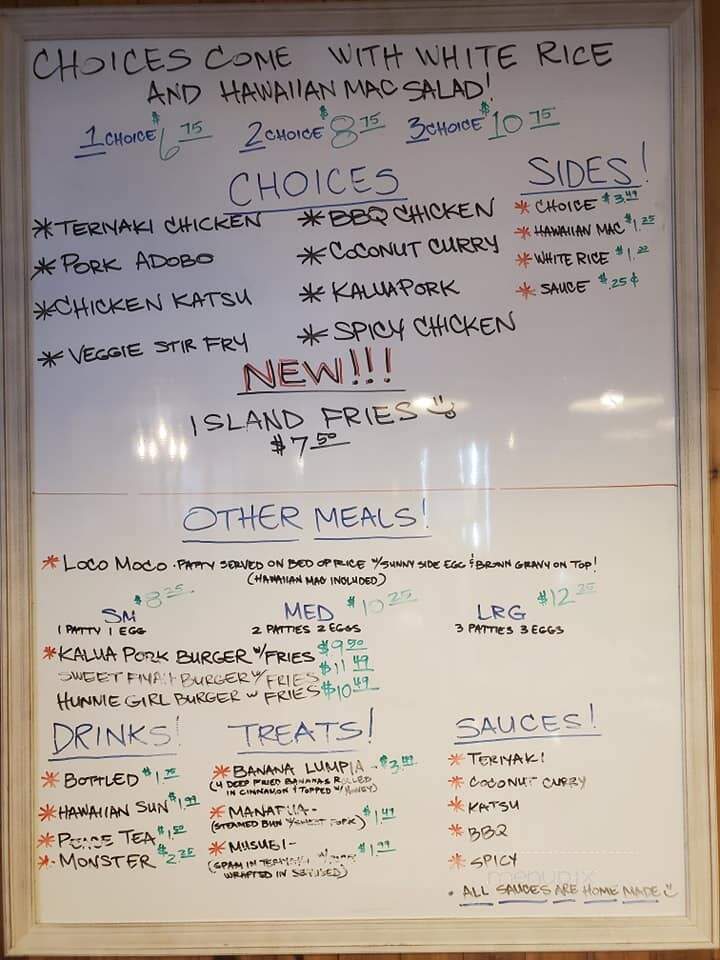 CHOICES COME WITH WHITE RICE
AND HAWAIIAN MAC SALAD!
1 CHOICE $6.75 2 CHOICE $8.75 3 CHOICE $10.75
CHOICES
* TERIYAKI CHICKEN
* PORK ADOBO
* CHICKEN KATSU
* VEGGIE STIR FRY
* BBQ CHICKEN
* COCONUT CURRY
* KALUA PORK
* SPICY CHICKEN
SIDES!
* CHOICE $3.49
* HAWAIIAN MAC $1.25
* WHITE RICE $1.
* SAUCE $.25¢
NEW!!!
ISLAND FRIES
$7.50
OTHER MEALS!
* LOCO MOCO - PATTY SERVED ON BED OF RICE W/ SUNNY SIDE EGG & BROWN GRAVY ON TOP!
(HAWAIIAN MAC INCLUDED)
SM $8.25
1 PATTY 1 EGG
MED $10.25
2 PATTIES 2 EGGS
LRG $12.25
3 PATTIES 3 EGGS
* KALUA PORK BURGER W/ FRIES $9.50
SWEET FIYAH BURGER W/ FRIES $11.49
HUNNIE GIRL BURGER W FRIES $10.49
DRINKS!
* BOTTLED
* HAWAIIAN SUN $1.99
* PEACE TEA $1.50
* MONSTER $2.25
TREATS!
* BANANA LUMPIA -
(4 DEEP FRIED BANANAS ROLLED
IN CINNAMON & TOPPED W/ HONEY)
* MANAPUA - $1.49
(STEAMED BUN W/ SWEET PORK)
* MUSUBI - $1.99
(SPAM IN TERIYAKI
WRAPPED IN
SAUCES!
* TERIYAKI
* COCONUT CURRY
* KATSU
* BBQ
* SPICY
menupix
• ALL SAUCES ARE HOME MADE